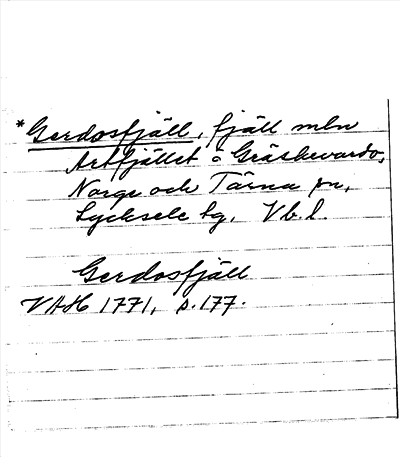 *Gerdosfjäll, fjäll mln
Artfjället o Gräskevardo,
Norge och Tärna sn,
Lycksele lg. Vb. l.
Gerdosfjäll
VAH 1771, s. 177.